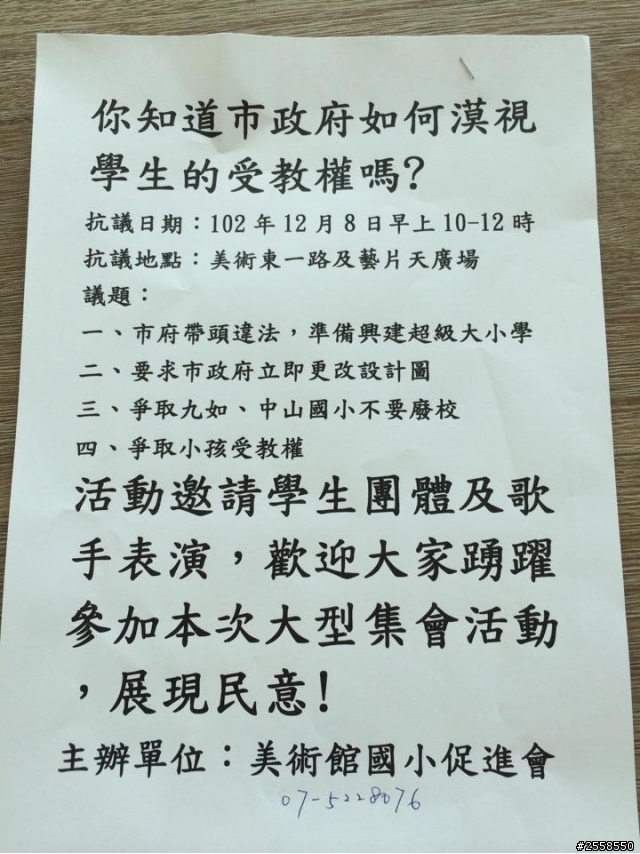 你知道市政府如何漠視
學生的受教權嗎?
抗議日期：102 年 12 月 8 日早上 10-12 時
抗議地點：美術東一路及藝片天廣場
議題：
一、市府帶頭違法，準備興建超級大小學
二、要求市政府立即更改設計圖
三、爭取九如、中山國小不要廢校
四、爭取小孩受教權
活動邀請學生團體及歌
手表演，歡迎大家踴躍
參加本次大型集會活動
，展現民意!
主辦單位：美術館國小促進會
07-5228076
#2558550